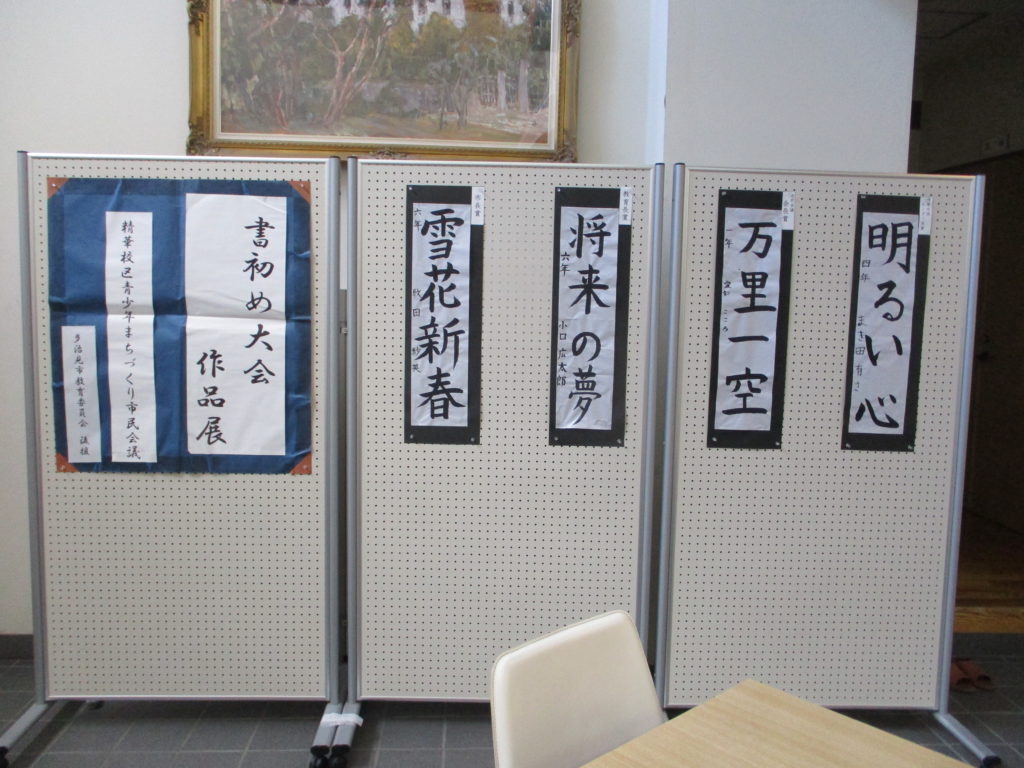 書初め大会
作品展
精華校区青少年まちづくり市民会議
多治見市教育委員会 後援
教育長賞
将来の夢
六年 小口 広太郎
市長賞
雪花新春
六年
明るい心
四年
会長賞
万里一空
一年